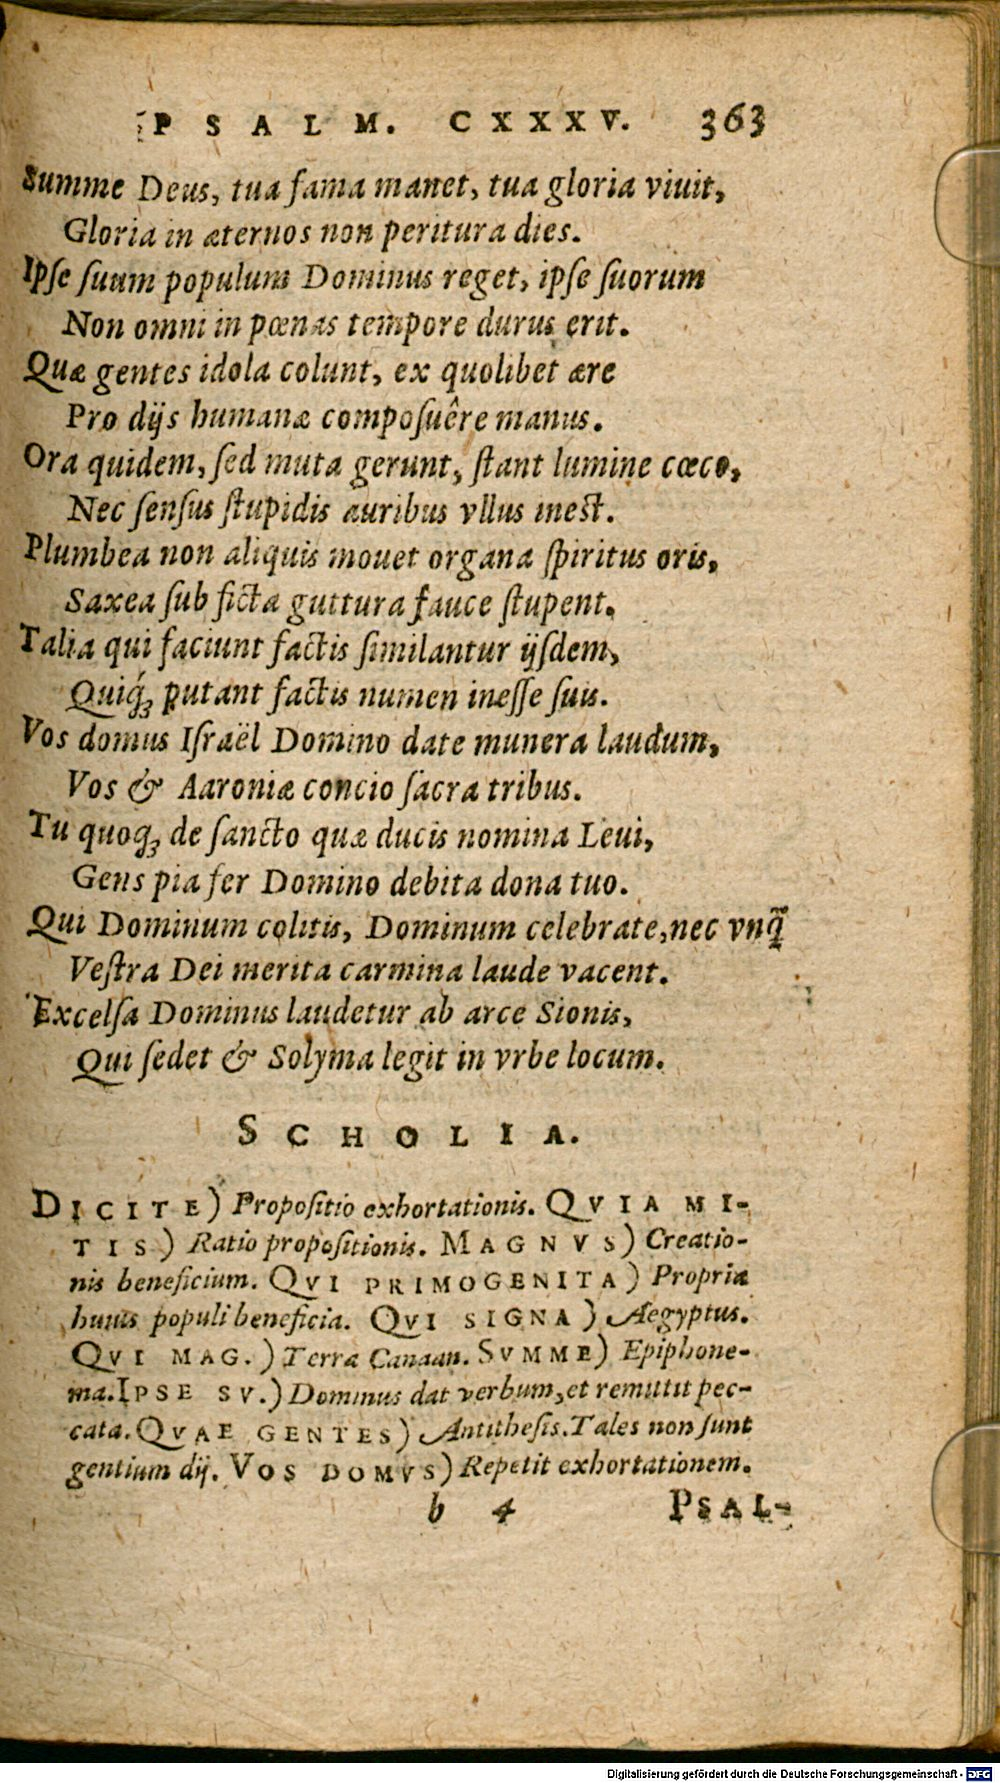 PSALM. CXXXV. 363
Summe Deus, tua fama manet, tua gloria viuit,
Gloria in æternos non peritura dies.
Ipſe ſuum populum Dominus reget, ipſe ſuorum
Non omni in pœnas tempore durus erit.
Quæ gentes idola colunt, ex quolibet ære
Pro dijs humanæ compoſuêre manus.
Ora quidem, ſed muta gerunt, ſtant lumine cœco,
Nec ſenſus ſtupidis auribus vllus ineſt.
Plumbea non aliquis mouet organa ſpiritus oris,
Saxea ſub ficta guttura fauce ſtupent.
Talia qui faciunt factis ſimilantur ijſdem,
Quiq́ꝫ putant factis numen ineſſe ſuis.
Vos domus Iſraël Domino date munera laudum,
Vos & Aaroniæ concio ſacra tribus.
Tu quoqꝫ de ſancto quæ ducis nomina Leui,
Gens pia fer Domino debita dona tuo.
Qui Dominum colitis, Dominum celebrate, nec vnq̃
Veſtra Dei merita carmina laude vacent.
Excelſa Dominus laudetur ab arce Sionis,
Qui ſedet & Solyma legit in vrbe locum.
SCHOLIA.
DICITE) Propoſitio exhortationis. QVIA MI-
TIS) Ratio propoſitionis. MAGNVS) Creatio-
nis beneficium. QVI PRIMOGENITA) Propria
huius populi beneficia. QVI SIGNA) Aegyptus.
QVI MAG.) Terra Canaan. SVMME) Epiphone-
ma. IPSE SV.) Dominus dat verbum, et remittit pec-
cata. QVAE GENTES) Antitheſis. Tales non ſunt
gentium dij. VOS DOMVS) Repetit exhortationem.
b 4 PSAL-
Digitalisierung gefördert durch die Deutsche Forschungsgemeinschaft - DFG